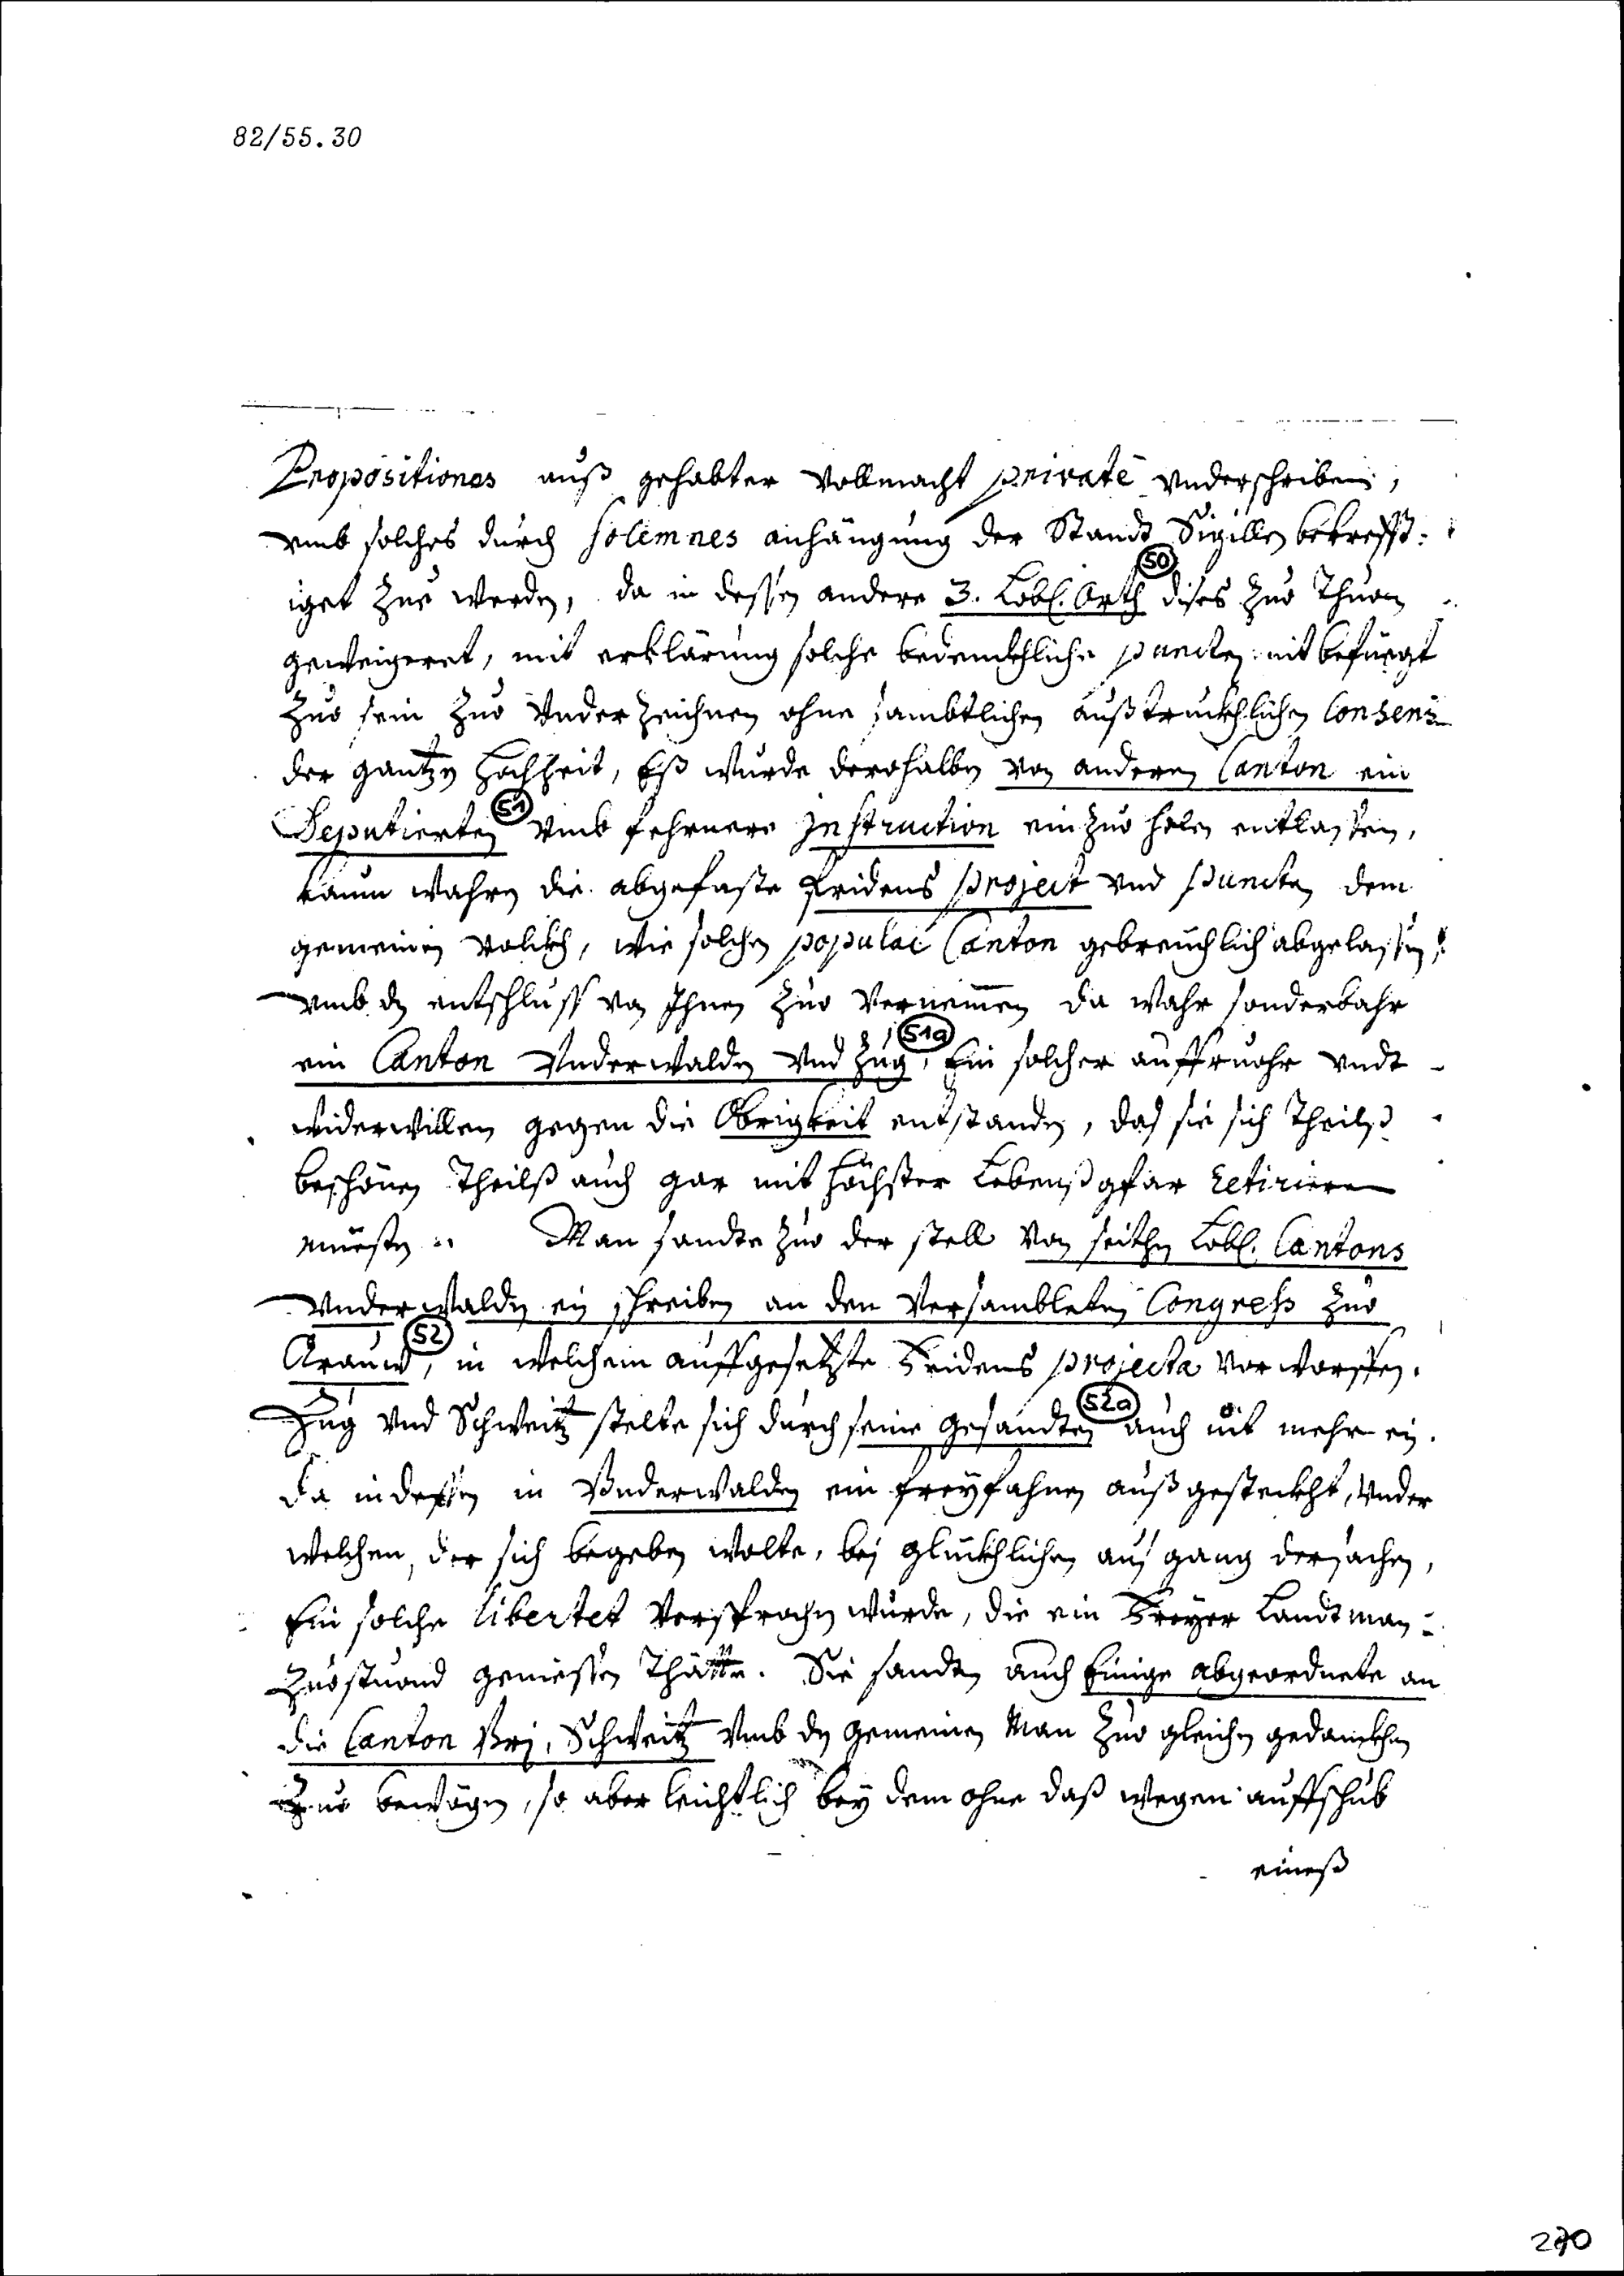 82/55.30
Propositiones auß gehabter Vollmacht privatè vnderschriben,
vmb solches durch solemnes anhängung der Standt Sigillen bekrefft=
iget zuo werden, da in dessen andere 3. Lobl. Orth (50) dises zuo Thuon
geweigeret, mit erklärung solche bedenckhliche puncten nit befüegt
zuo sein zuo Vnderzeichnen ohne sambtlichen außtruckhlichen Consens
der gantzen Hochheit, Eß wurde derohalben von anderen Canton ein
Deputierten (51) vmb fehrnere Instruction ein zuo holen entlassen,
kaum wahren die abgefaste fridens project vnd puncten dem
gemeinen Volckh, wie solchen popular Canton gebreuchlich abgelassen,
vmb den entschluss von Ihnen zuo Vernemen da wahr sonderbahr
ein Canton Vnderwalden Vnd Zug (51a), Ein solcher auffruohr vndt
widerwillen gegen die Obrigkeit entstanden, das sie sich Theilß
beschönen Theilß auch gar mit höchster Lebenßgfar retirieren
müesten. Man sandte zuo der stell von seithen Lobl. Cantons
Vnderwalden ein schreiben an den Versambleten Congress zuo
Arauw (52), in welchem auffgesetzte Fridens projecta verworffen.
Zug vnd Schweitz stelte sich durch seine gesandten (52a) auch nit mehr ein.
da indessen in Vnderwalden ein freyfahnen außgesteckht, Vnder
welchen, der sich begeben wolte, bej glückhlichen ausgang der sachen,
Ein solche libertet Versprochen wurde, die ein Freyer Landtman
zuostuond geniessen Thätte. Sie sandten auch Einige abgeordnete an
die Canton Vrj, Schweitz Vmb den gemeinen Man zuo gleichen gedanckhen
zuo bewögen, so aber leichtlich bey dem ohne daß wegen auffschub
eineß